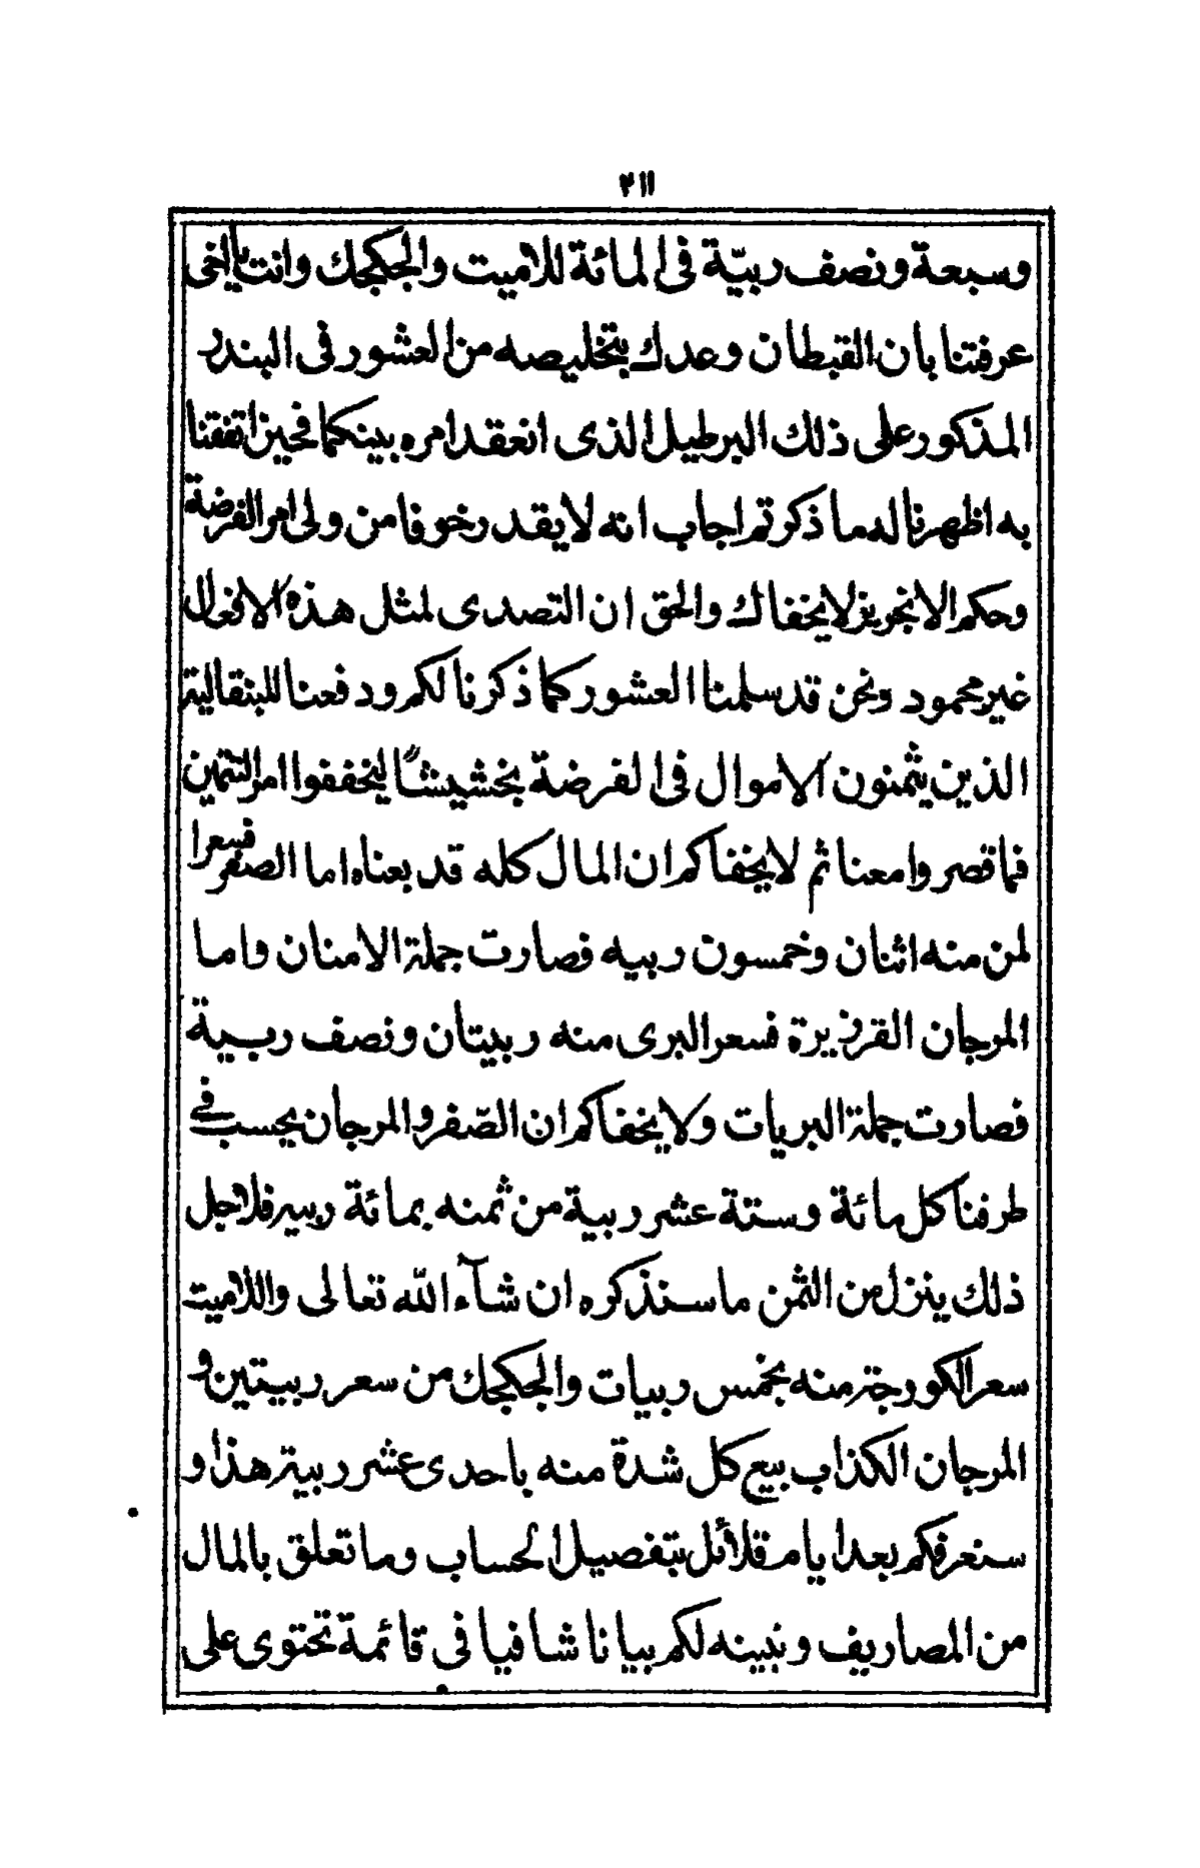 ٢١١
وسبعة ونصف ربيّة فى المائة للاميت والجكجك وانت يااخى
عرفتنا بان القبطان وعدك بتخليصه من العشور فى البندر
المذكور على ذلك البرطيل الذى انعقد امره بينكما فحين اتفقنا
به اظهرنا له ما ذكرتم اجاب انه لا يقدر خوفا من ولى امر الفرضة
وحكم الانجريز لا يخفاك والحق ان التصدى لمثل هذه الافعال
غير محمود ونحن قد سلمنا العشور كما ذكرنا لكم ودفعنا للبنقالية
الذين يثمنون الاموال فى الفرضة بخشيشًا ليخففوا امر التثمين
فما قصروا معنا ثم لا يخفاكم ان المال كله قد بعناه اما الصفر فسعرا
لمن منه اثنان وخمسون ربيه فصارت جملة الامنان واما
المرجان القرزيرة فسعر البرى منه ربيتان ونصف ربية
فصارت جملة البريات ولا يخفاكم ان الصّفر والمرجان يحسب فى
طرفنا كل مائة وستة عشر ربية من ثمنه بمائة ربيه فلاجل
ذلك ينزل من الثمن ما سنذكره ان شآء الله تعالى واللاميت
سعر الكورجة منه بخمس ربيات والجكجك من سعر ربيتين و
المرجان الكذاب بيع كل شدة منه باحدى عشر ربية هذا و
سنعرفكم بعد ايام قلائل بتفصيل الحساب وما تعلق بالمال
من المصاريف ونبينه لكم بيانا شافيا فى قائمة تحتوى على